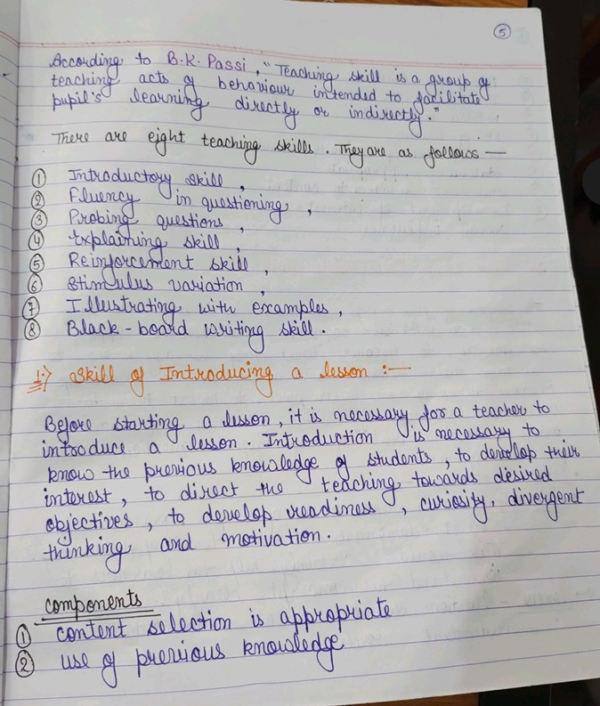 5
According to B.K. Passi, "Teaching skill is a group of
teaching acts of behaviour intended to facilitate
pupil's learning directly or indirectly."
There are eight teaching skills. They are as follows —
① Introductory skill,
② Fluency in questioning,
③ Probing questions,
④ Explaining skill,
⑤ Reinforcement skill,
⑥ Stimulus variation,
⑦ Illustrating with examples,
⑧ Black-board writing skill.
1:) Skill of Introducing a lesson :—
Before starting a lesson, it is necessary for a teacher to
introduce a lesson. Introduction is necessary to
know the previous knowledge of students, to develop their
interest, to direct the teaching towards desired
objectives, to develop readiness, curiosity, divergent
thinking and motivation.
Components
① content selection is appropriate
② use of previous knowledge